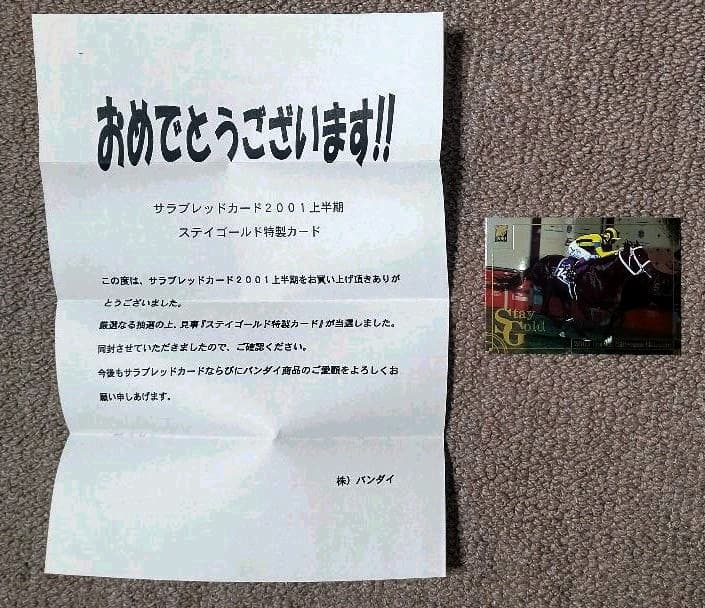 おめでとうございます!!
サラブレッドカード２００１上半期
ステイゴールド特製カード
この度は、サラブレッドカード２００１上半期をお買い上げ頂きありが
とうございました。
厳選なる抽選の上、見事『ステイゴールド特製カード』が当選しました。
同封させていただきましたので、ご確認ください。
今後もサラブレッドカードならびにバンダイ商品のご愛顧をよろしくお
願い申しあげます。
株）バンダイ
Stay
Gold